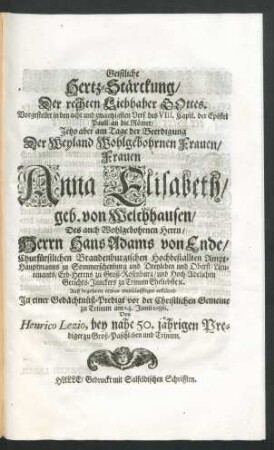 Geistliche
Hertz-Stärckung/
Der rechten Liebhaber GOttes.
Vorgestellet in den acht und zwantzigsten Verß des VIII. Capit. der Epistel
Pauli an die Römer/
Jetzo aber am Tage der Beerdigung
Der Weyland Wohlgebohrnen Frauen/
Frauen
Anna Elisabeth/
geb. von Welchhausen/
Des auch Wohlgebohrnen Herrn/
Herrn Hans Adams von Ende/
Churfürstlichen Brandenburgischen Hochbestallten Ampt-
Hauptmanns zu Sommerschenburg und
und Oberst-Lieu-
tenants/ Erb-Herrns zu Groß und Hoch-Adelichen
Gerichts-Junckers zu Trinum Eheliebsten.
Auff begehren etwas weitläufftiger erkläret
In einer Gedächtnüß-Predigt vor der Christlichen Gemeine
zu Trinum am Junii
Von
Henrico Lezio, bey nahe 50. jährigen Pre-
diger zu Groß-Paschleben und Trinum.
HALLE/ Gedruckt mit Salfeldischen Schrifften.